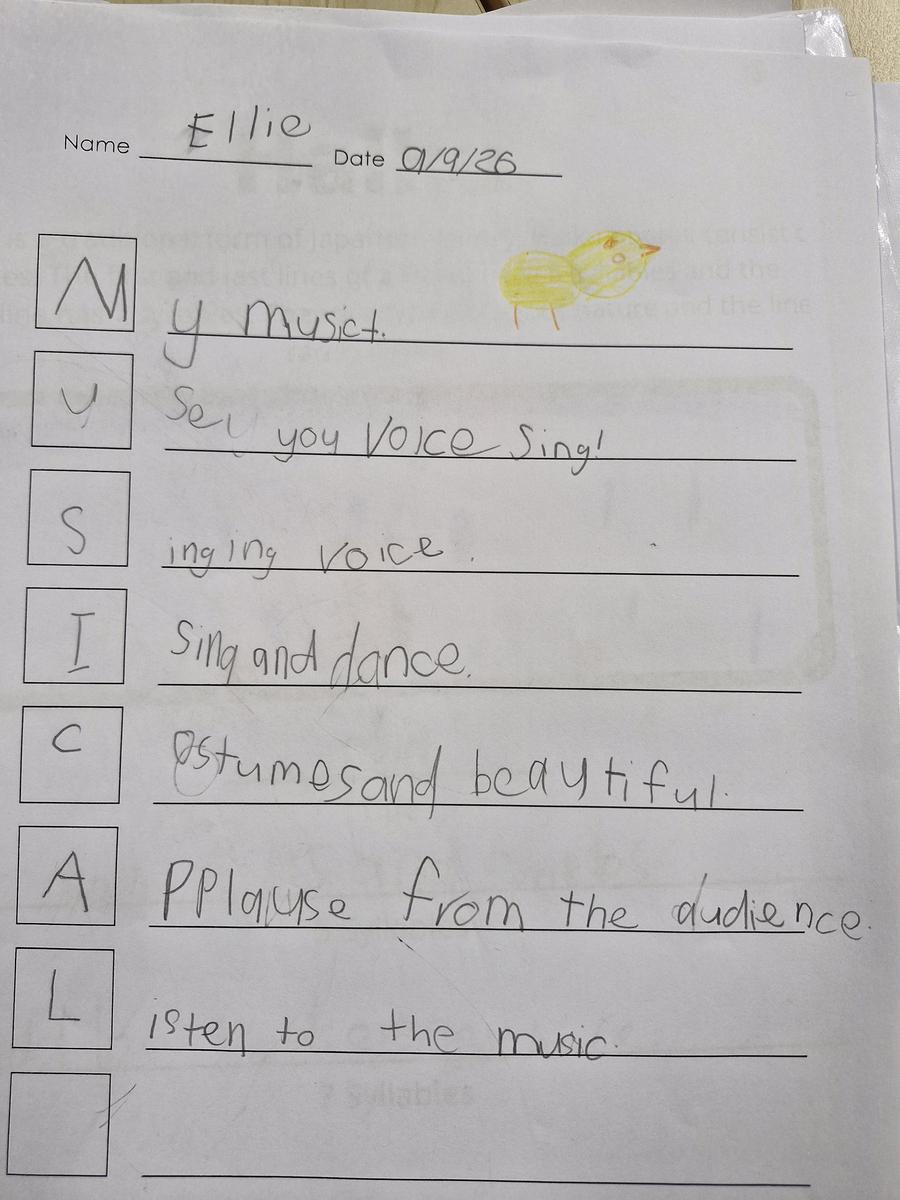 Name Ellie Date 9/9/26
M y music.
U Se you voice sing!
S inging voice.
I sing and dance.
C ostumes and beautiful.
A pplause from the audience.
L isten to the music.
7 Syllables